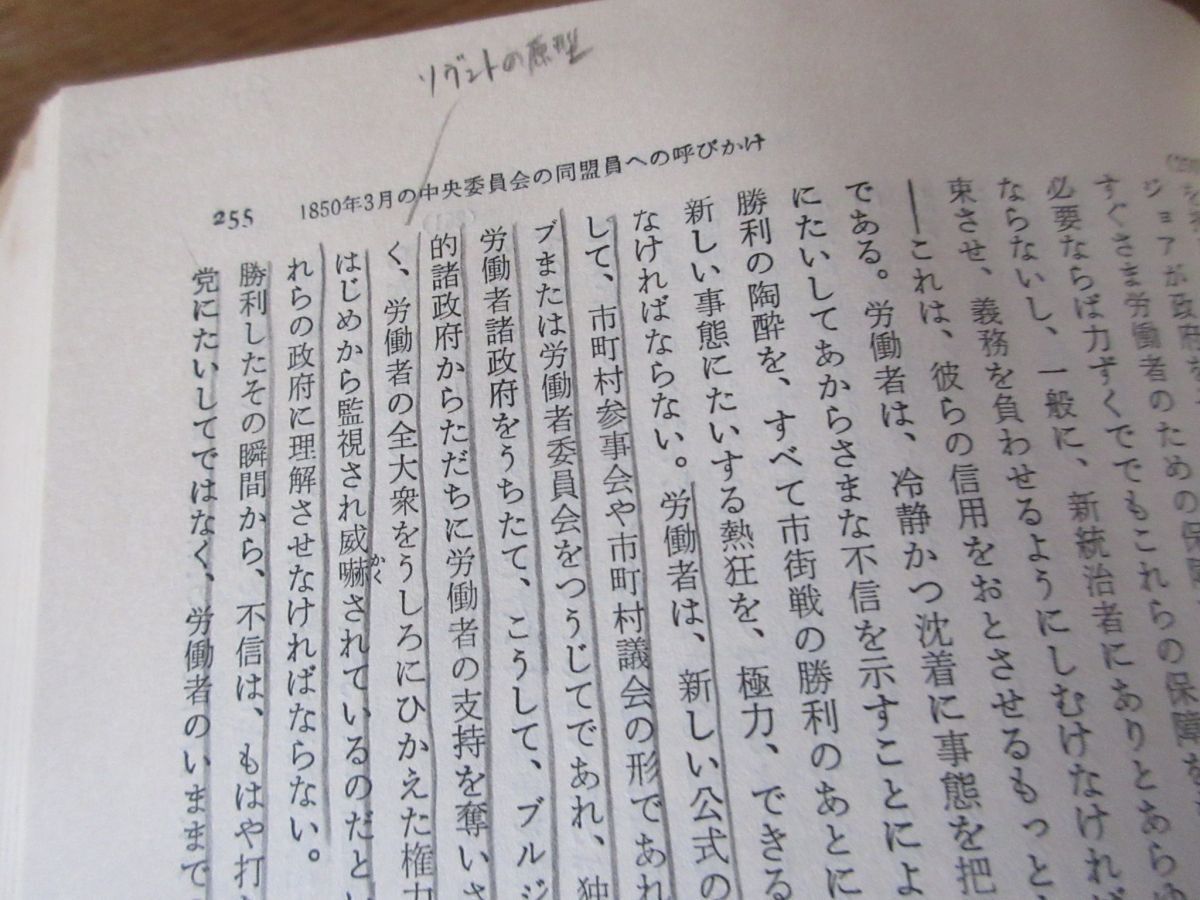 ソヴェトの原型
255 1850年3月の中央委員会の同盟員への呼びかけ
ジョアが政府を
すぐさま労働者のための保障
必要ならば力ずくででもこれらの保障を
ならないし、一般に、新統治者にありとあらゆ
束させ、義務を負わせるようにしむけなければ
――これは、彼らの信用をおとさせるもっと
である。労働者は、冷静かつ沈着に事態を把
にたいしてあからさまな不信を示すことによ
勝利の陶酔を、すべて市街戦の勝利のあとに
新しい事態にたいする熱狂を、極力、できる
なければならない。労働者は、新しい公式の
して、市町村参事会や市町村議会の形であれ
ブまたは労働者委員会をつうじてであれ、独
労働者諸政府をうちたて、こうして、ブルジ
的諸政府からただちに労働者の支持を奪いさ
く、労働者の全大衆をうしろにひかえた権力
はじめから監視され威嚇かくされているのだとい
れらの政府に理解させなければならない。
勝利したその瞬間から、不信は、もはや打
党にたいしてではなく、労働者のいままで